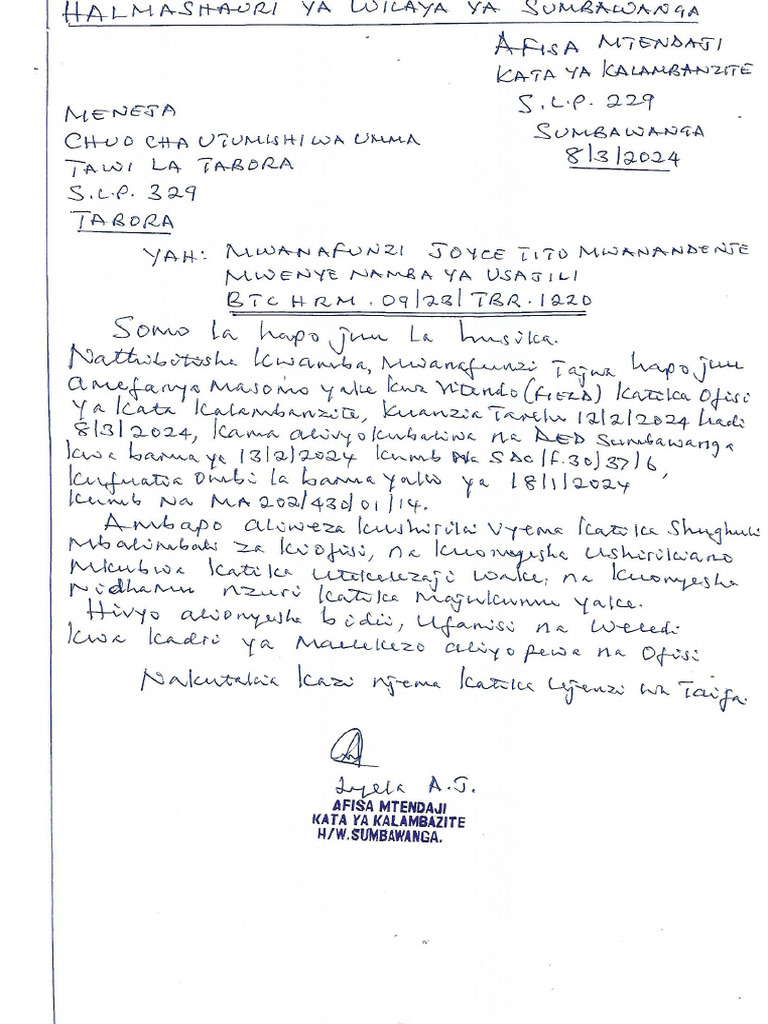 HALMASHAURI YA WILAYA YA SUMBAWANGA
AFISA MTENDAJI
KATA YA KALAMBANZITE
S.L.P. 229
SUMBAWANGA
8/3/2024
MENEJA
CHUO CHA UTUMISHI WA UMMA
TAWI LA TABORA
S.L.P. 329
TABORA
YAH: MWANAFUNZI JOYCE TITO MWANANDENJE
MWENYE NAMBA YA USAJILI
BTCHRM.09/23/TBR.1220
Somo la hapo juu la husika.
Nathibitisha kwamba, Mwanafunzi Tajwa hapo juu
amefanya masomo yake kwa vitendo (FIELD) katika Ofisi
ya Kata Kalambanzite, kuanzia Tarehe 12/2/2024 hadi
8/3/2024, kama alivyokubaliwa na DED Sumbawanga
kwa barua ya 13/2/2024 kumb Na SDC/f.30/37/6,
kufuatia Ombi la barua yako ya 18/1/2024
kumb Na MA 202/430/01/14.
Ambapo aliweza kushiriki vyema katika Shughuli
Mbalimbali za kiofisi, na kuonyesha Ushirikiano
Mkubwa katika utekelezaji wake, na kuonyesha
Nidhamu nzuri katika majukumu yake.
Hivyo alionyesha bidii, Ufanisi na Weledi
kwa kadri ya Maelekezo aliyopewa na Ofisi
Nakutakia kazi njema katika Ujenzi wa Taifa.
A.J.
AFISA MTENDAJI
KATA YA KALAMBAZITE
H/W.SUMBAWANGA.